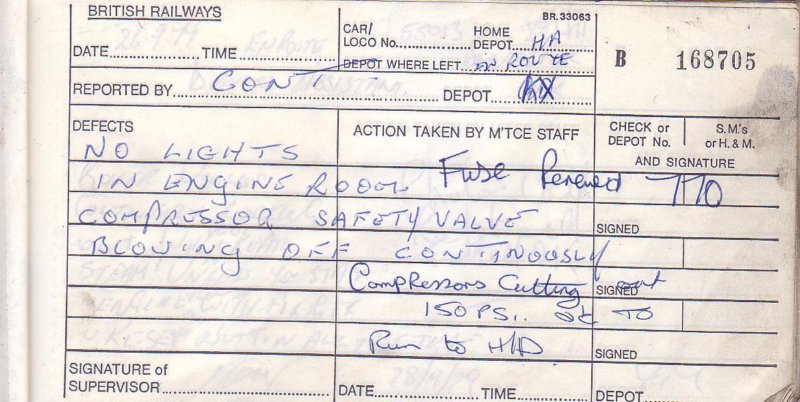 BRITISH RAILWAYS
BR.33063
DATE 26-9-79 TIME EN ROUTE
CAR/ LOCO No. 55013 HOME DEPOT HA
DEPOT WHERE LEFT EN ROUTE
B 168705
REPORTED BY CONT DEPOT
DEFECTS
ACTION TAKEN BY M'TCE STAFF
CHECK or DEPOT No.
S.M.'s or H. & M.
AND SIGNATURE
NO LIGHTS
IN ENGINE ROOM. Fuse Renewed 770
COMPRESSOR SAFETY VALVE
SIGNED
BLOWING OFF CONTINOUSLY
Compressors Cutting out
SIGNED
150 PSI.. OK TO
Run to H/D
SIGNED
SIGNATURE OF SUPERVISOR
DATE 28/9/79 TIME
DEPOT